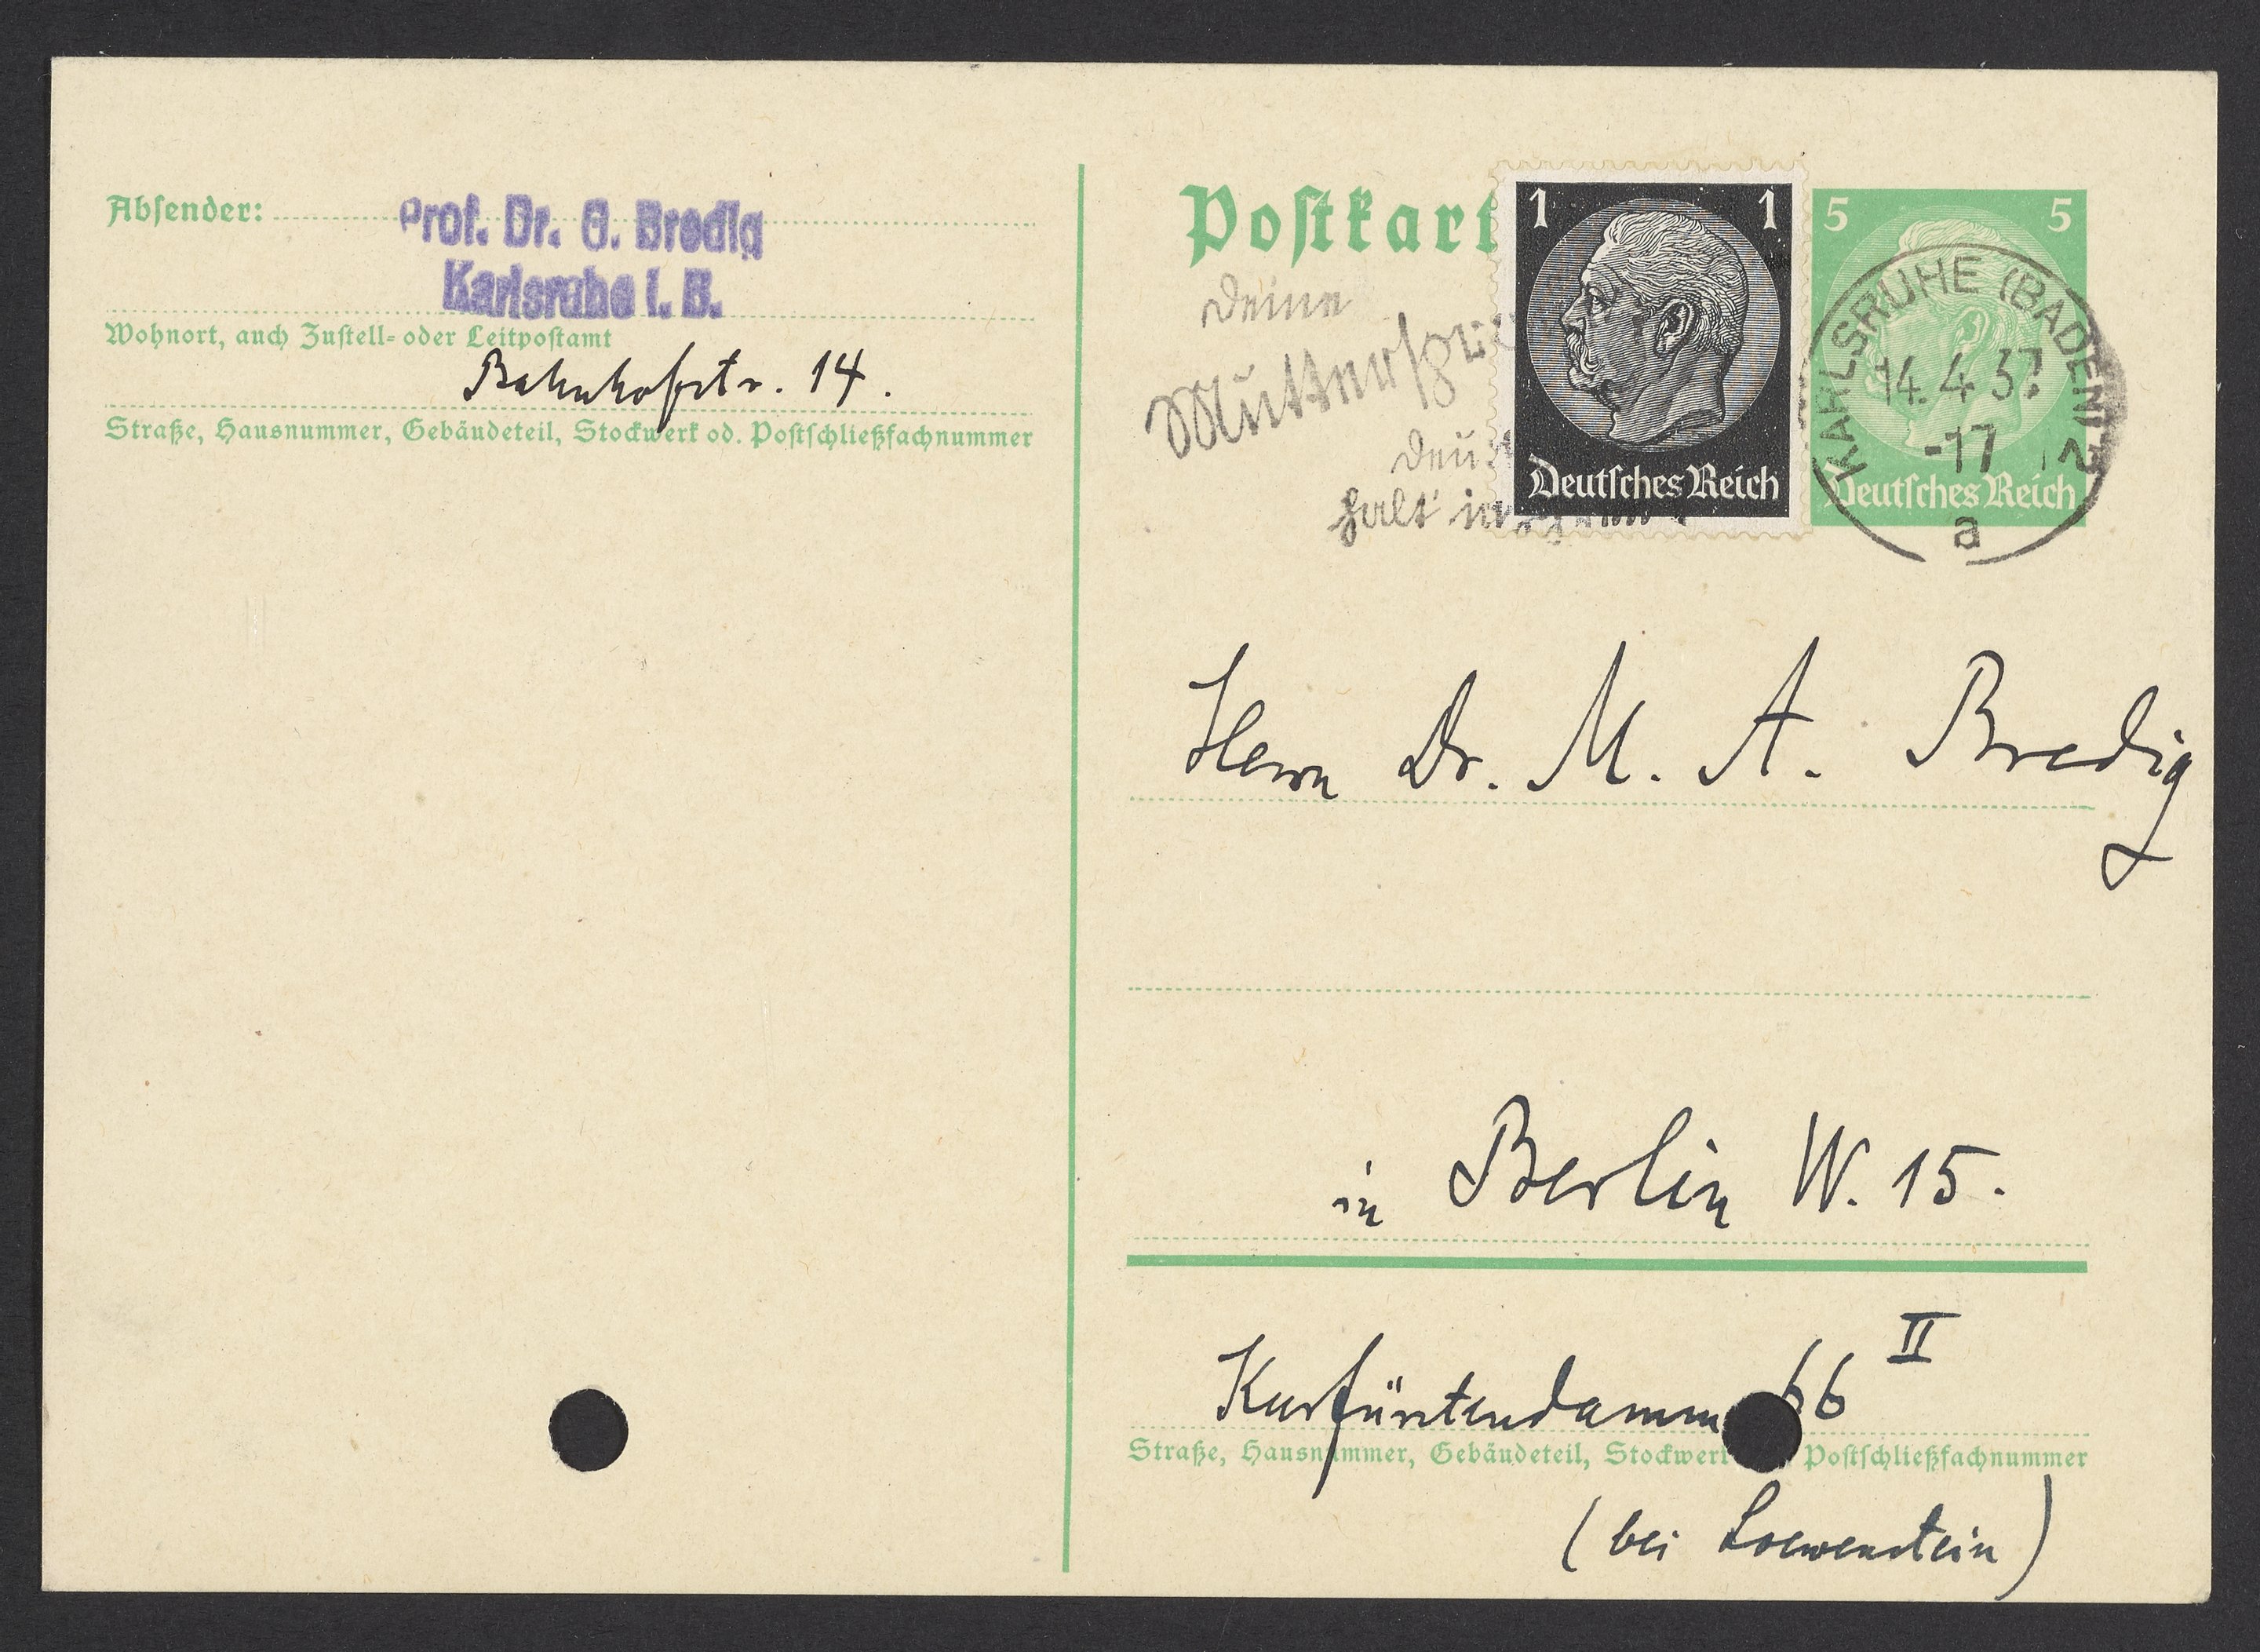 Absender:
Prof. Dr. G. Bredig
Karlsruhe i. B.
Wohnort, auch Zustell- oder Leitpostamt
Bahnhofstr. 14.
Straße, Hausnummer, Gebäudeteil, Stockwerk od. Postschließfachnummer
Postkart
1 1
Deutsches Reich
5 5
Deutsches Reich
KARLSRUHE (BADEN) 2
14.4.37
-17
a
Deine
Mutterspra
halt
Herrn Dr. M. A. Bredig
in Berlin W. 15.
Kurfürstendamm 66 II
Straße, Hausnummer, Gebäudeteil, Stockwerk Postschließfachnummer
(bei Loewenstein)